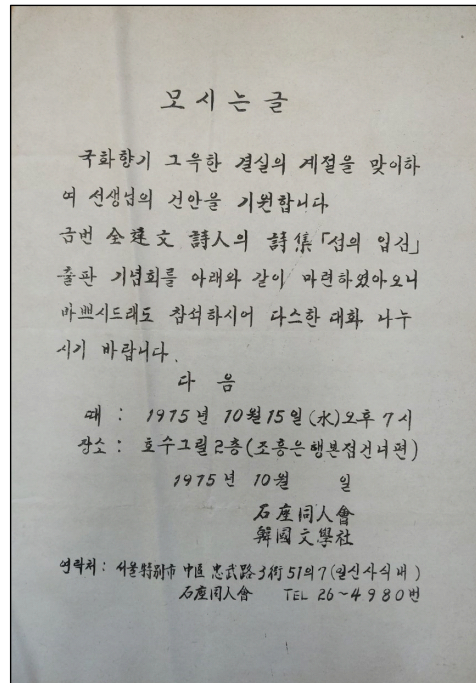 모시는 글
국화향기 그윽한 결실의 계절을 맞이하
여 선생님의 건안을 기원합니다
금번 全達文 詩人의 詩集「섬의 입김」
출판 기념회를 아래와 같이 마련하였아오니
바쁘시드래도 참석하시어 다스한 대화 나누
시기 바랍니다.
다음
때 : 1975년 10월 15일 (水) 오후 7시
장소 : 호수그릴 2층 (조흥은행본점건너편)
1975년 10월 일
石座同人會
韓國文學社
연락처 : 서울特別市 中區 忠武路 3街 51의 7 (일신사식내)
石座同人會 TEL 26~4980번